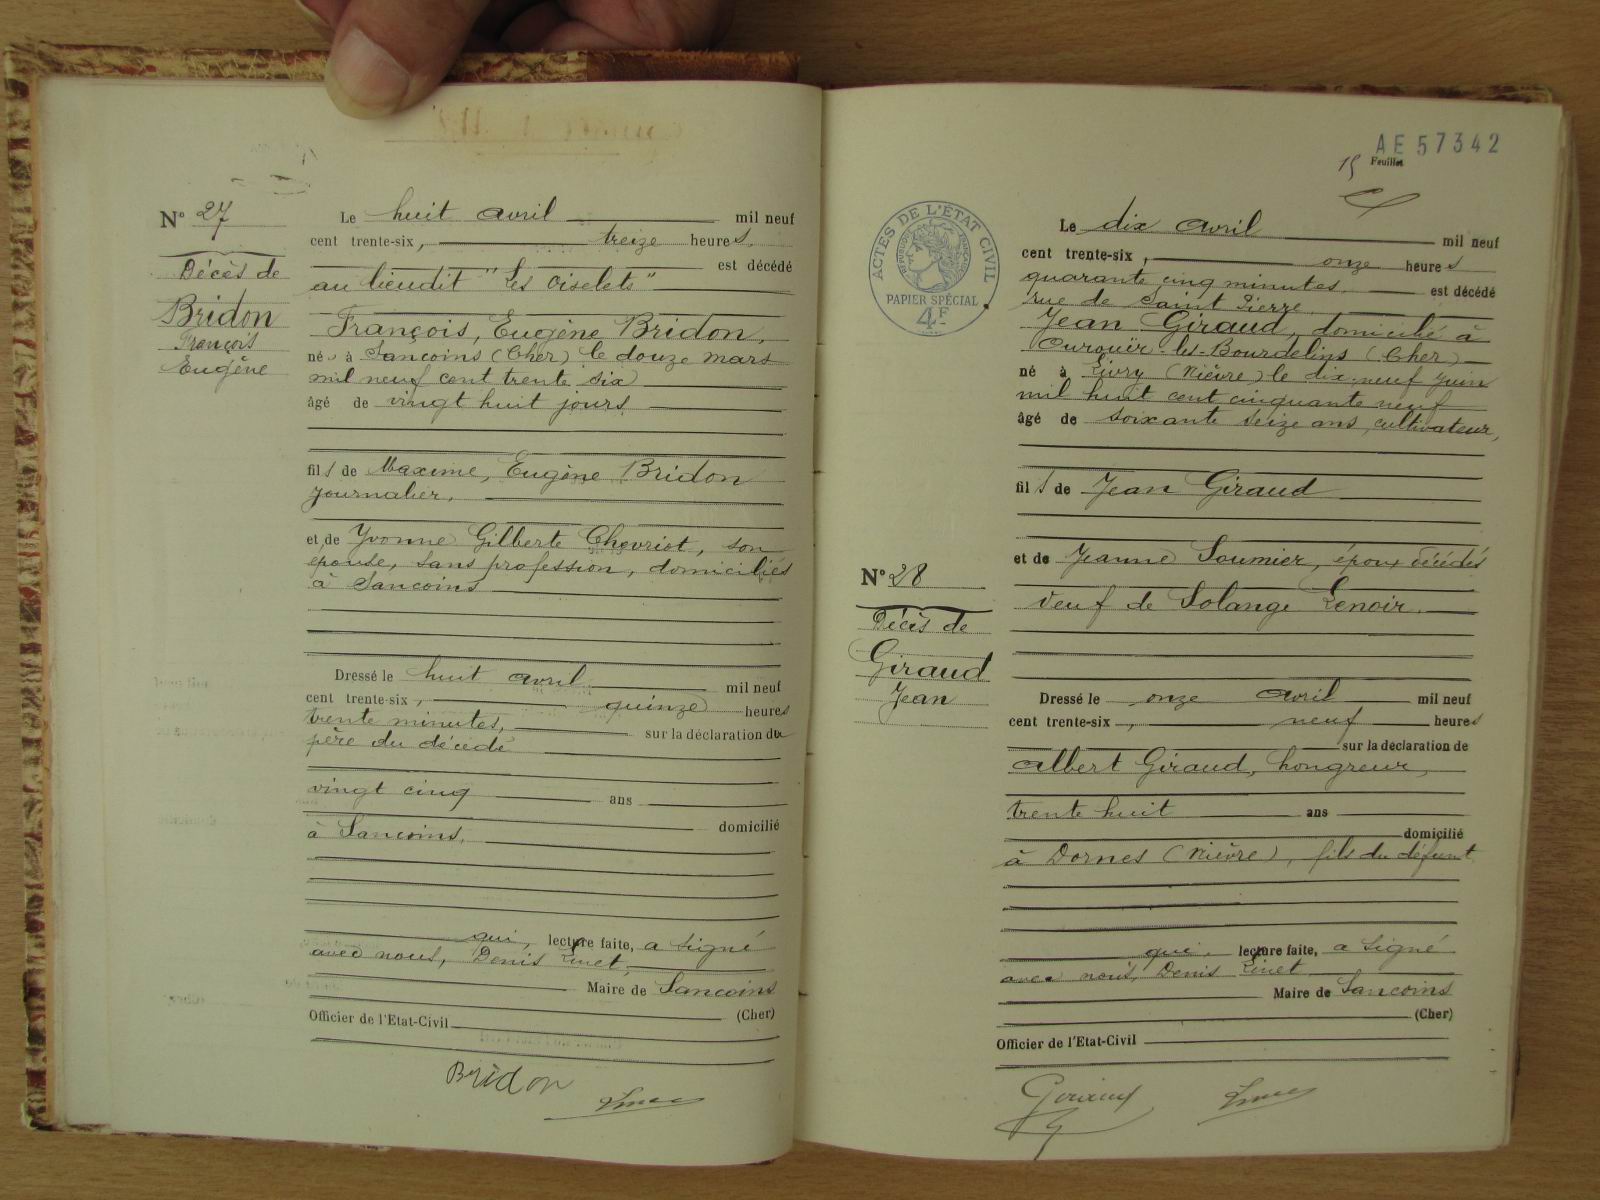 N° 27
Décès de
Bridon
François
Eugène
Le huit avril mil neuf
cent trente-six, treize heures
est décédé
au lieudit "Les Oiselets"
François, Eugène Bridon,
né à Sancoins (Cher) le douze mars
mil neuf cent trente six
âgé de vingt huit jours,
fils de Maxime, Eugène Bridon
journalier,
et de Yvonne Gilberte Chevriot, son
épouse, sans profession, domiciliés
à Sancoins
Dressé le huit avril mil neuf
cent trente-six, quinze heures
trente minutes, sur la déclaration du
père du décédé
vingt cinq ans
domicilié
à Sancoins,
qui, lecture faite, a signé
avec nous, Denis Linet,
Maire de Sancoins
(Cher)
Officier de l'Etat-Civil
Bridon
AE 57342
15 Feuillet
ACTES DE L'ÉTAT CIVIL
RÉPUBLIQUE FRANÇAISE
PAPIER SPÉCIAL
4F
N° 28
Décès de
Giraud
Jean
Le dix avril mil neuf
cent trente-six, onze heures
quarante cinq minutes est décédé
rue de Saint Pierre
Jean Giraud, domicilié à
Ourouër-les-Bourdelins (Cher)
né à Livry (Nièvre) le dix-neuf juin
mil huit cent cinquante neuf
âgé de soixante seize ans, cultivateur,
fils de Jean Giraud
et de Jeanne Soumier, époux décédés
Veuf de Solange Lenoir.
Dressé le onze avril mil neuf
cent trente-six, neuf heures
sur la déclaration de
Albert Giraud, hongreur,
trente huit ans
domicilié
à Dornes (Nièvre), fils du défunt
qui, lecture faite, a signé
avec nous, Denis Linet
Maire de Sancoins
(Cher)
Officier de l'Etat-Civil
Giraud